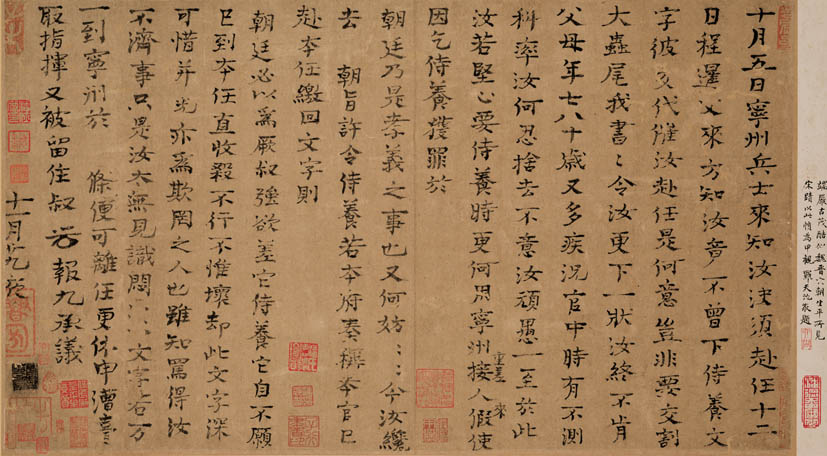 嚴古茂酷似魏晉六朝生平所見
宋蹟以此幀為甲觀 羅天池敬題
十月五日寧州兵士來知汝決須赴任十二
日程暹父來方知汝竟一不曾下侍養文
字彼亥代催汝赴任是何意豈非要交割
大蟲尾我書〻令汝更下一狀汝終不肯
父母年七八十歲又多疾況官中時有不測
科率汝何忍捨去不意汝頑愚一至於此
汝若堅心要侍養時更何用寧州重差接人來假使
因乞侍養獲罪於
朝廷乃是孝義之事也又何妨〻〻今汝纔
去 朝旨許令侍養若本府奏稱本官已
赴本任繳回文字則
朝廷必以爲厥叔強欲差它侍養它自不願
已到本任直收殺不行不惟壞却此文字深
可惜并 亦爲欺罔之人也雖知罵得汝
不濟事只是汝太無見識悶〻〻文字若方
一到寧州於 條便可離任更依申漕臺
取指揮又被留住叔 報九承議
十一月